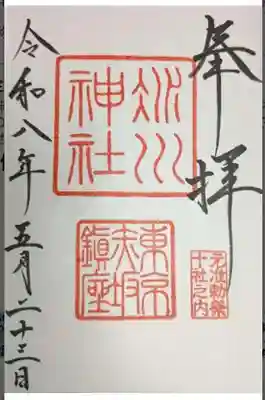 奉拝
氷川
神社
東京
赤坂
鎮座
元准勅祭
十社之内
令和八年五月二十三日